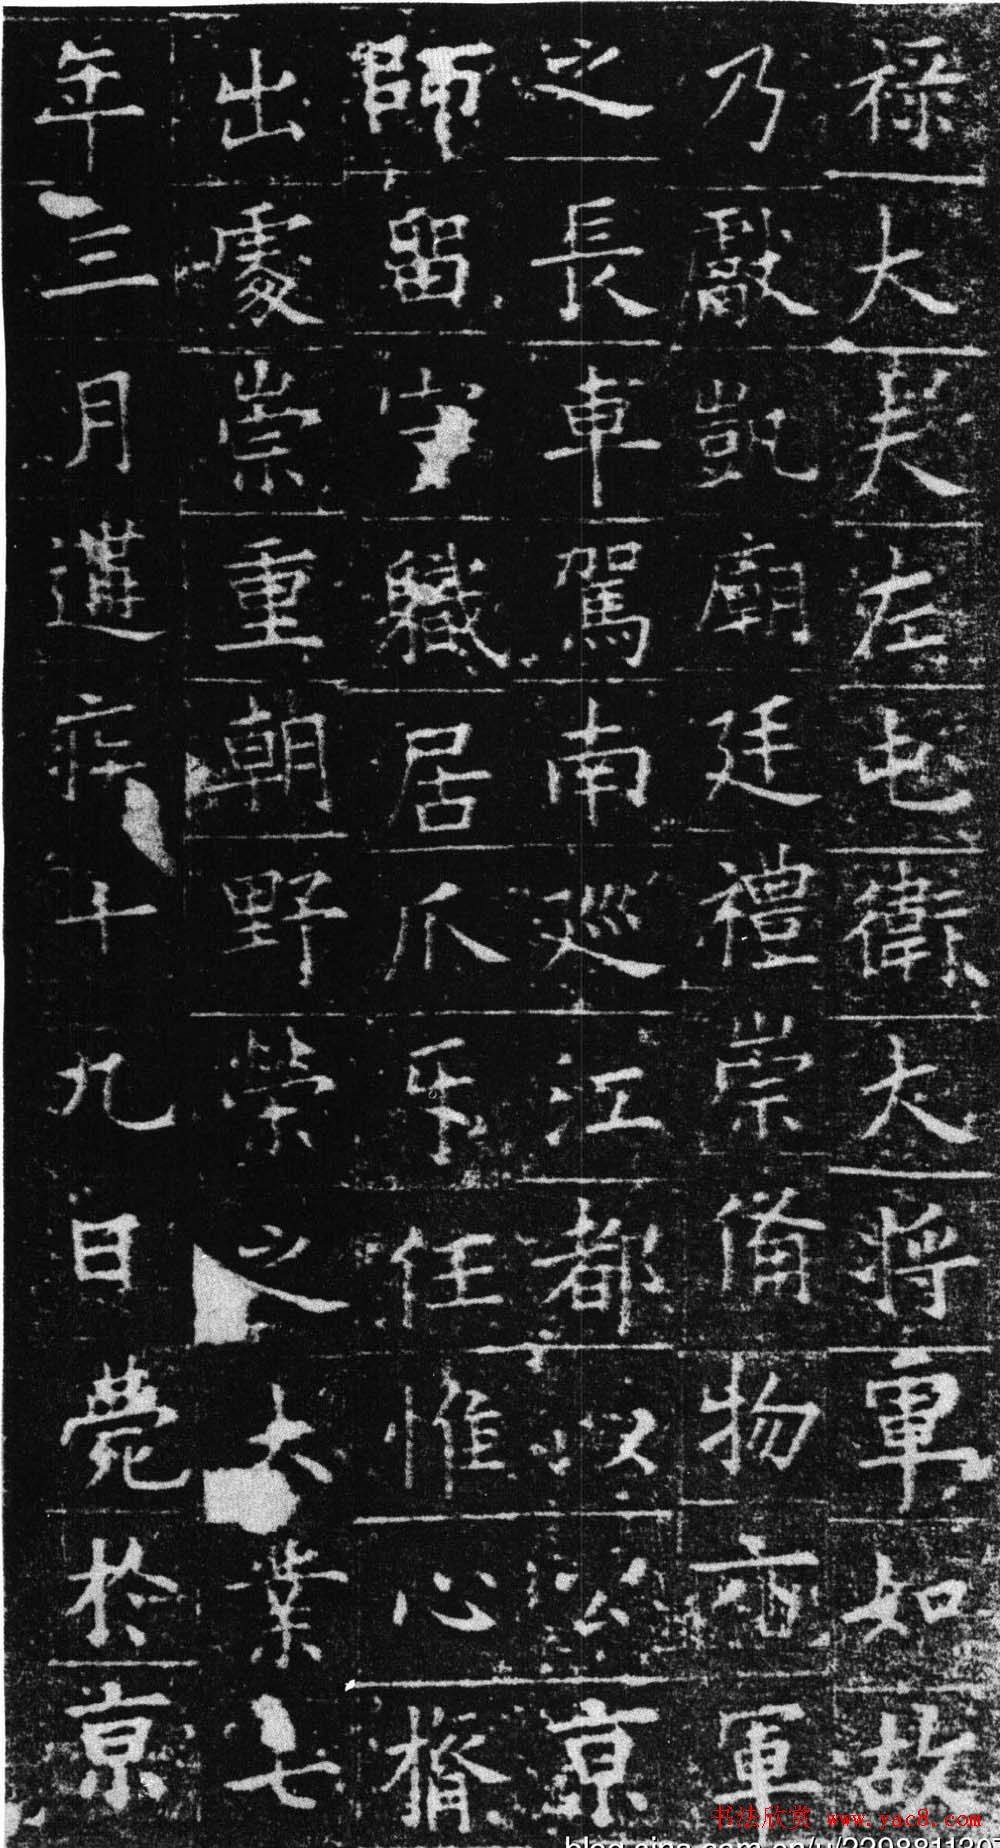 祿大夫左屯衛大將軍如故
乃獻凱廟廷禮崇備物亦軍
之長車駕南巡江都以公京
師留守職居爪牙任惟心膂
出處崇重朝野榮之大業七
年三月遘疾十九日薨於京
书法欣赏 www.yac8.com